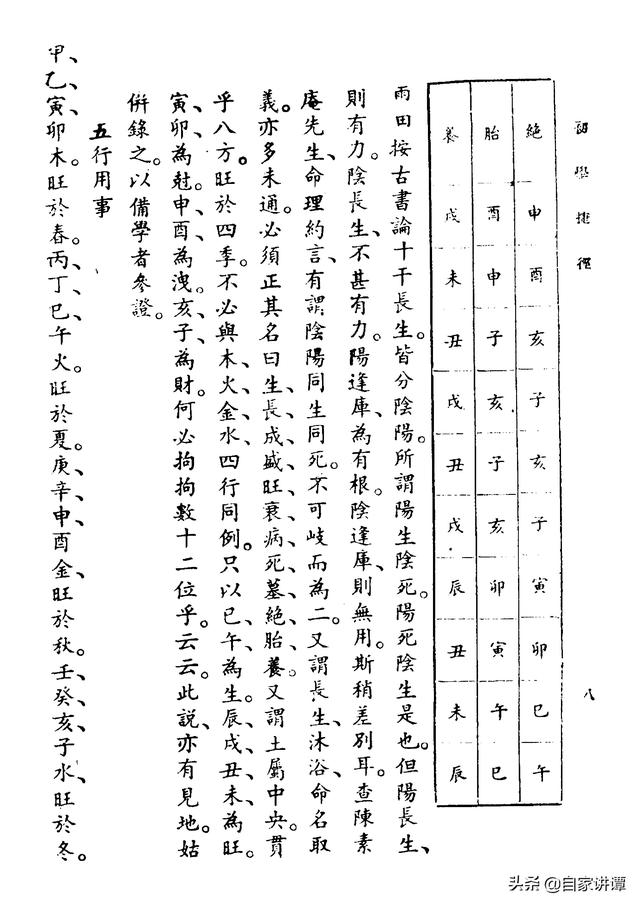 初學捷徑
八
絕 申 酉 亥 子 亥 子 寅 卯 巳 午
胎 酉 申 子 亥 子 亥 卯 寅 午 巳
養 戌 未 丑 戌 丑 戌 辰 丑 未 辰
雨田按古書論十干長生。皆分陰陽。所謂陽生陰死。陽死陰生是也。但陽長生、
則有力。陰長生、不甚有力。陽逢庫、為有根。陰逢庫、則無用。斯稍差別耳。查陳素
庵先生、命理約言、有謂陰陽同生同死。不可歧而為二。又謂長生、沐浴、命名取
義。亦多未通。必須正其名曰生、長、成、盛、旺、衰、病、死、墓、絕、胎、養。又謂土屬中央。貫
乎八方。旺於四季。不必與木、火、金、水、四行同例。只以巳、午、為生。辰、戌、丑、未、為旺。
寅、卯、為尅。申、酉、為洩。亥、子、為財。何必拘拘數十二位乎。云云。此說、亦有見地。姑
併錄之。以備學者參證。
五行用事
甲、乙、寅、卯、木。旺於春。丙、丁、巳、午、火。旺於夏。庚、辛、申、酉、金、旺於秋。壬、癸、亥、子、水、旺於冬。
头条 @自家讲谭